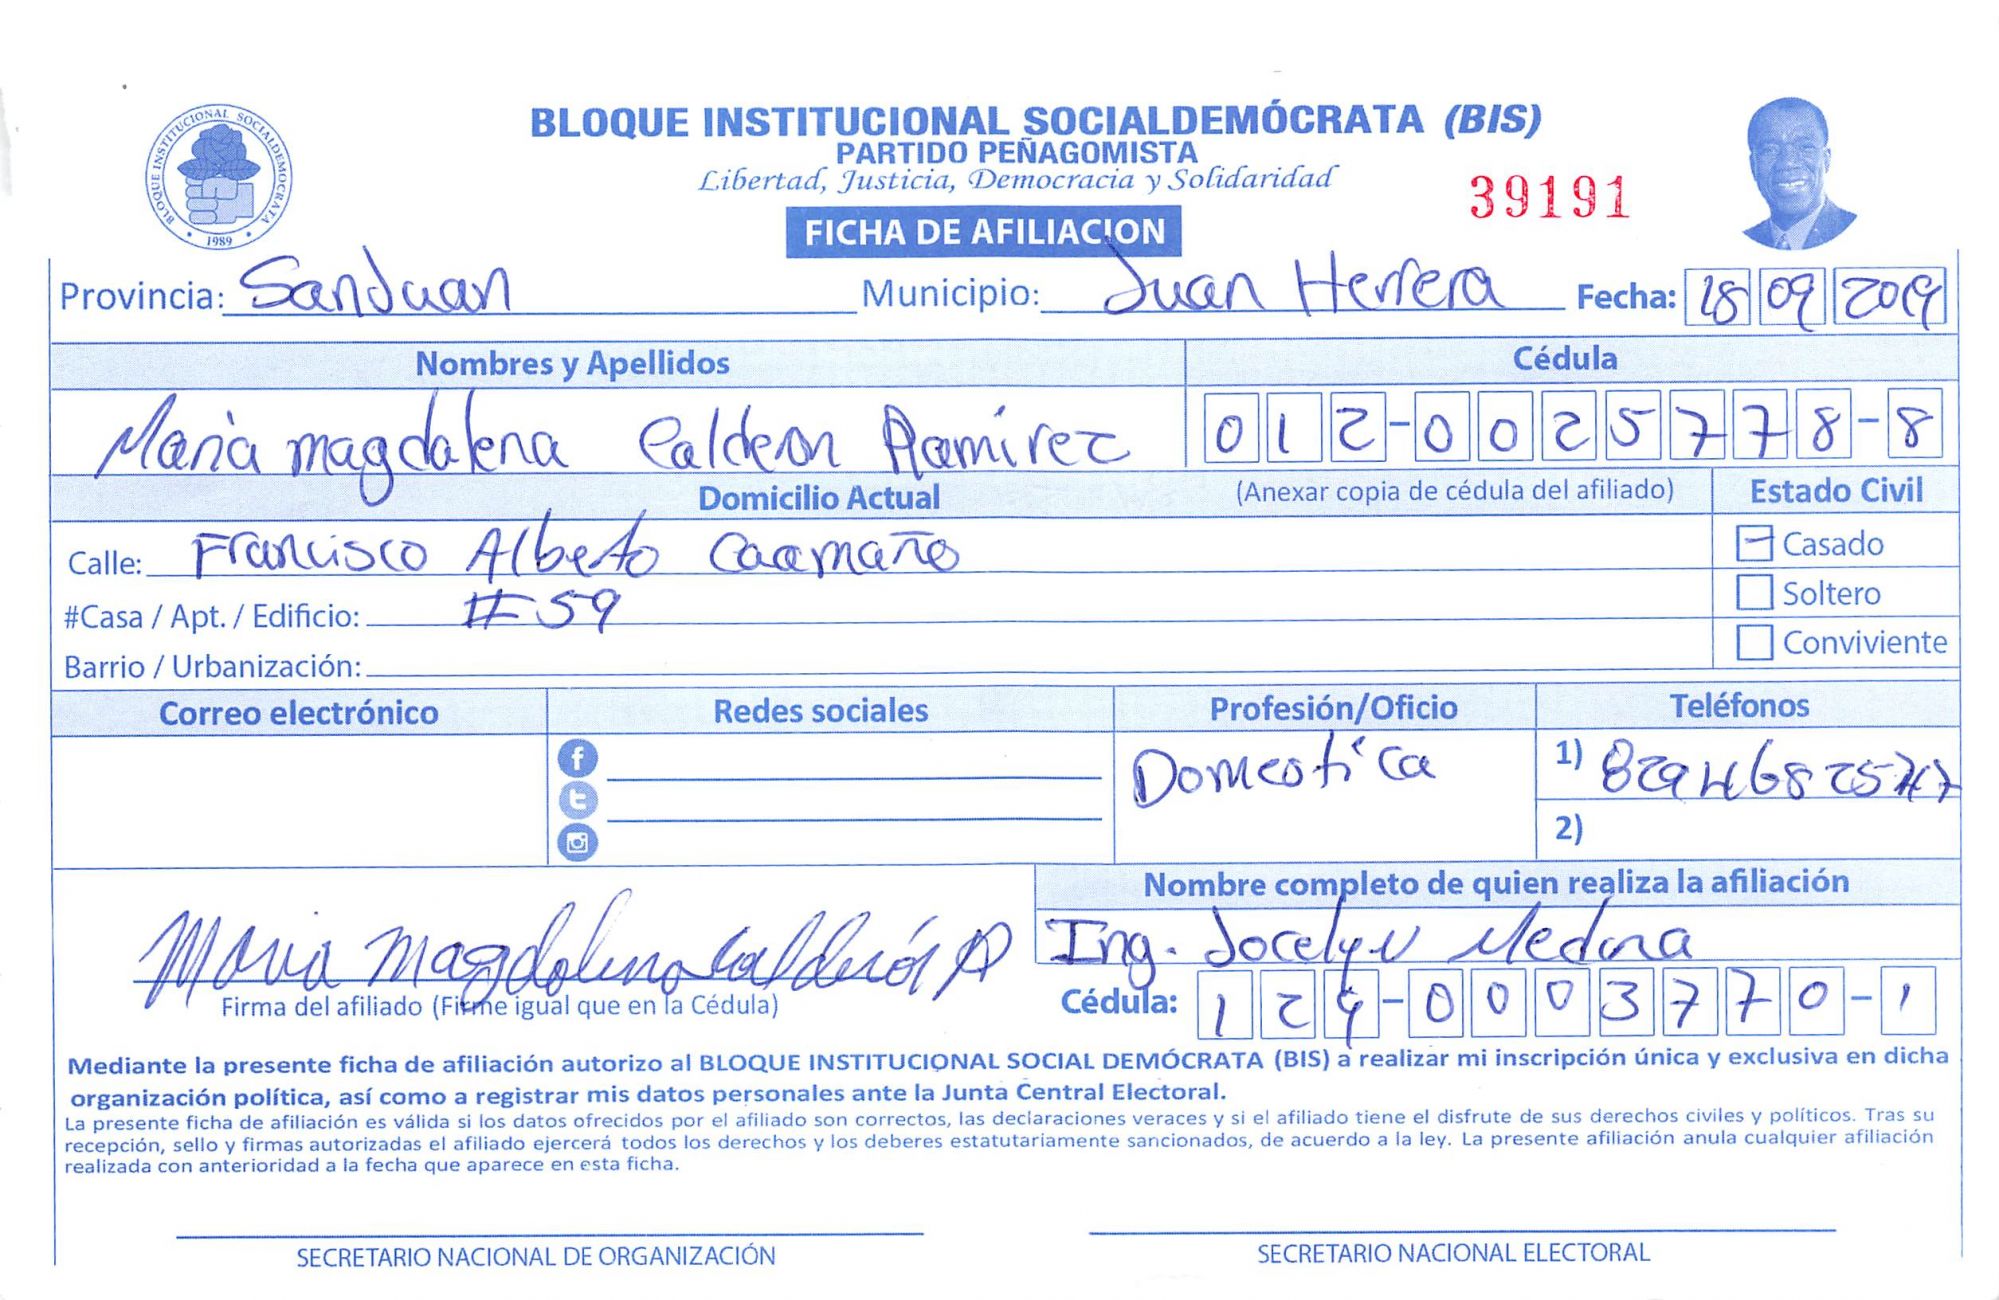 BLOQUE INSTITUCIONAL SOCIALDEMÓCRATA (BIS)
PARTIDO PEÑAGOMISTA
Libertad, Justicia, Democracia y Solidaridad
BLOQUE INSTITUCIONAL SOCIALDEMOCRATA
1989
39191
FICHA DE AFILIACION
Provincia: San Juan Municipio: Juan Herrera Fecha: 18 09 2019
Nombres y Apellidos Cédula
Maria magdalena Calderon Ramirez 012-0025778-8
Domicilio Actual (Anexar copia de cédula del afiliado) Estado Civil
Calle: Francisco Alberto Caamaño Casado
#Casa / Apt. / Edificio: #59 Soltero
Barrio / Urbanización: Conviviente
Correo electrónico Redes sociales Profesión/Oficio Teléfonos
Domestica 1)
2)
Nombre completo de quien realiza la afiliación
Maria Magdalena Calderón R Ing. Jocelyn Medina
Firma del afiliado (Firme igual que en la Cédula) Cédula: 124-0003770-1
Mediante la presente ficha de afiliación autorizo al BLOQUE INSTITUCIONAL SOCIAL DEMÓCRATA (BIS) a realizar mi inscripción única y exclusiva en dicha
organización política, así como a registrar mis datos personales ante la Junta Central Electoral.
La presente ficha de afiliación es válida si los datos ofrecidos por el afiliado son correctos, las declaraciones veraces y si el afiliado tiene el disfrute de sus derechos civiles y políticos. Tras su
recepción, sello y firmas autorizadas el afiliado ejercerá todos los derechos y los deberes estatutariamente sancionados, de acuerdo a la ley. La presente afiliación anula cualquier afiliación
realizada con anterioridad a la fecha que aparece en esta ficha.
SECRETARIO NACIONAL DE ORGANIZACIÓN SECRETARIO NACIONAL ELECTORAL